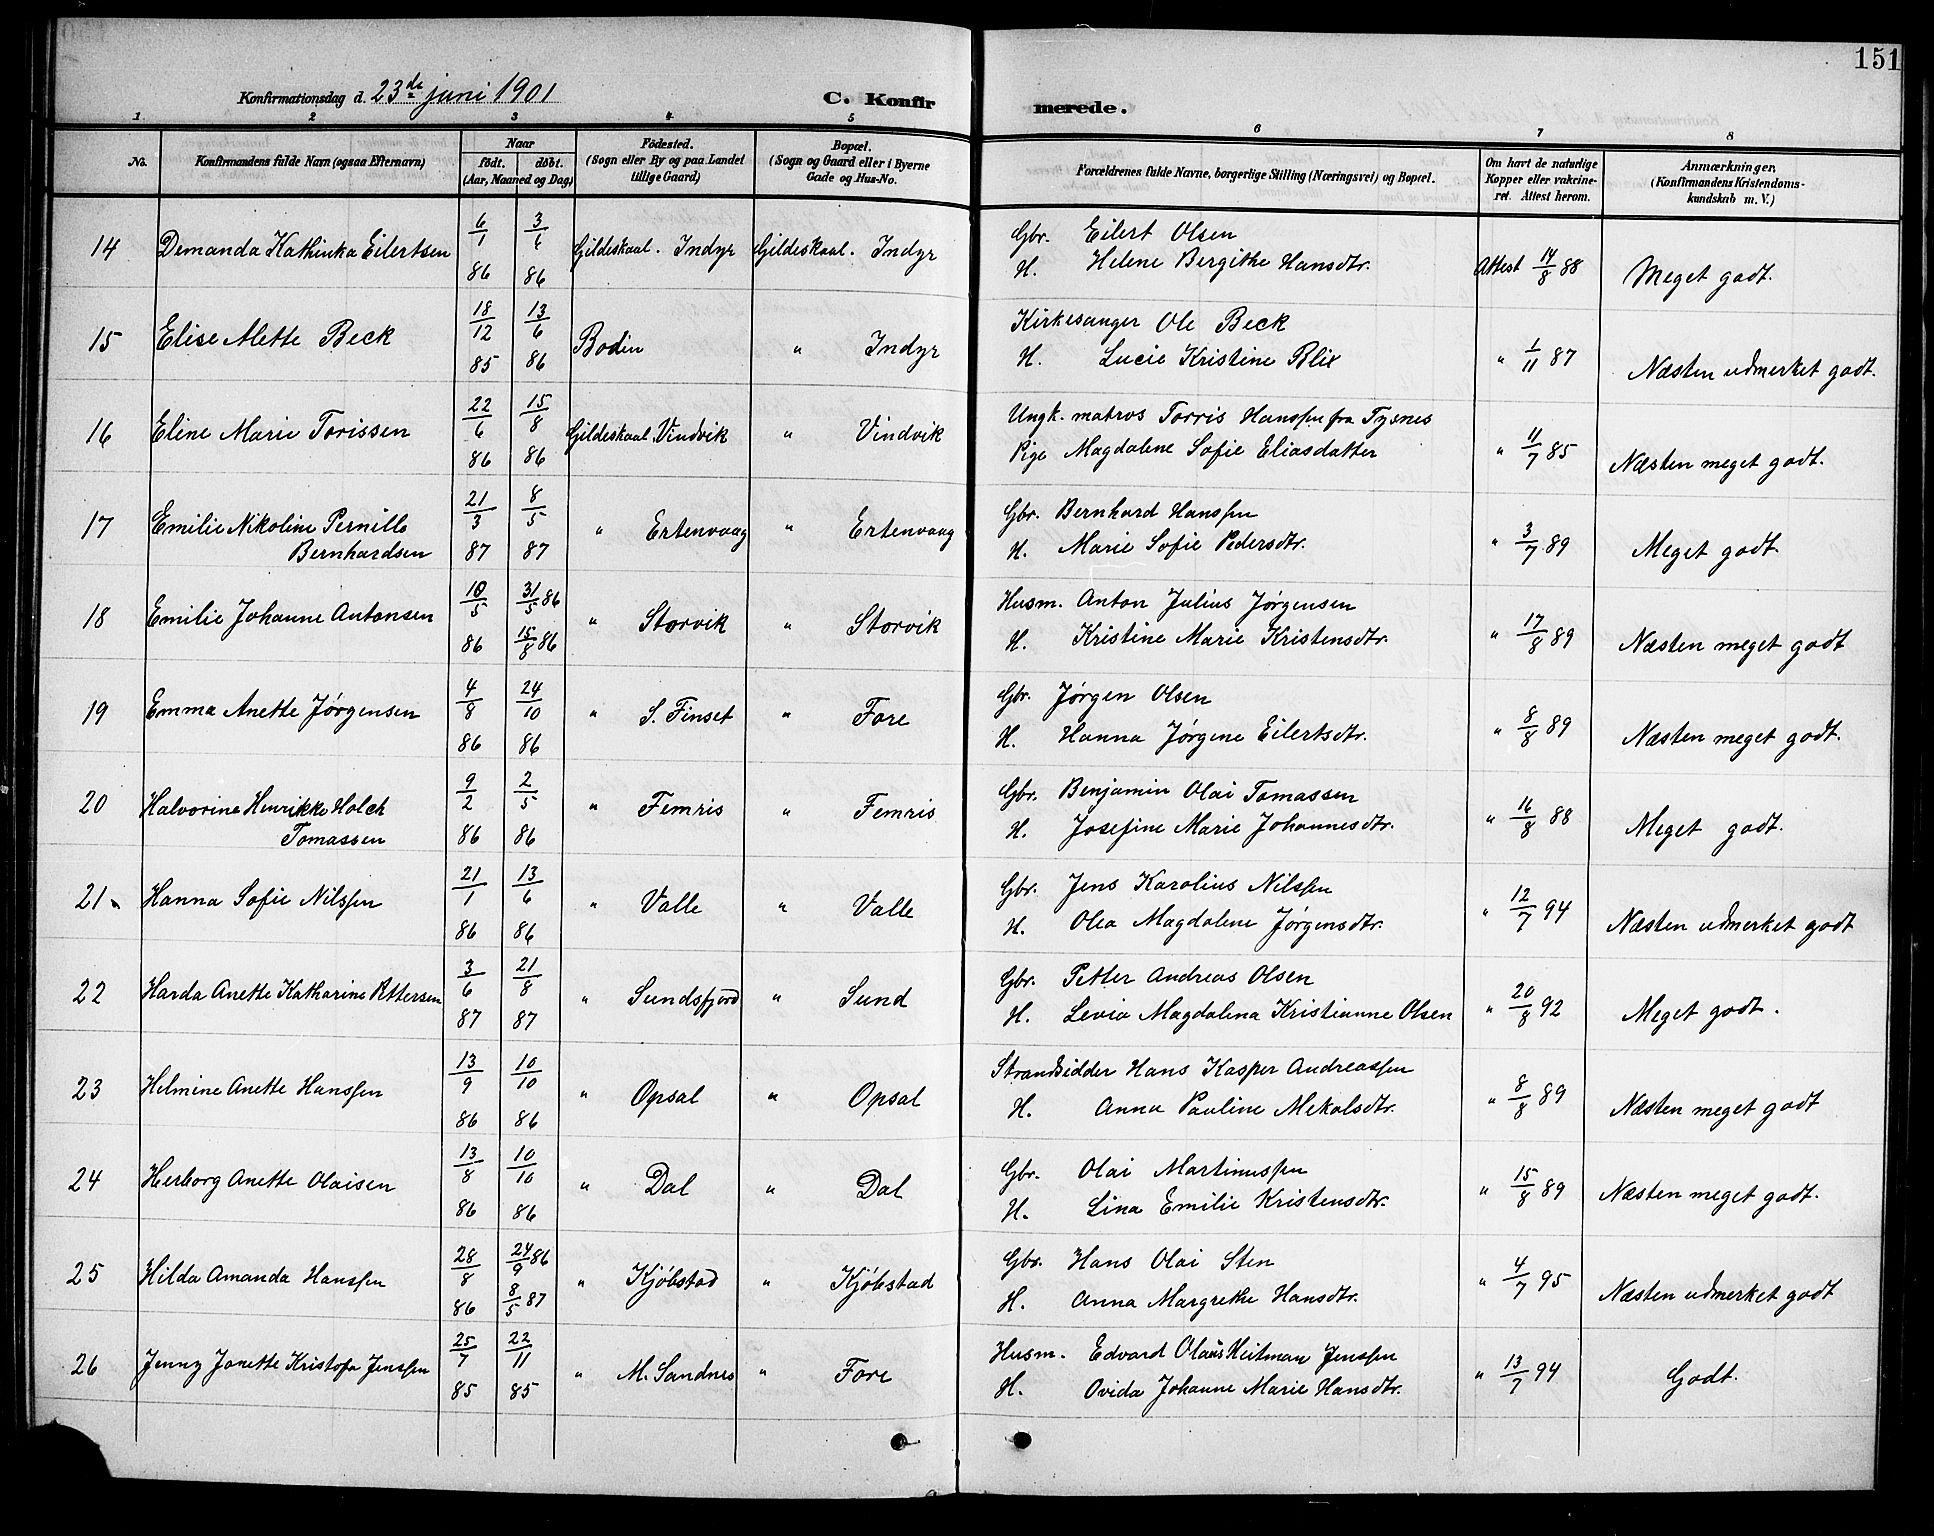 151
Konfirmationsdag d. 23de juni 1901 C. Konfirmerede.
1 2 3 4 5 6 7 8
No. Konfirmandens fulde Navn (ogsaa Efternavn) Naar født. døbt. (Aar, Maaned og Dag) Fødested. (Sogn eller By og paa Landet tillige Gaard) Bopæl. (Sogn og Gaard eller i Byerne Gade og Hus-No. Forældrenes fulde Navne, borgerlige Stilling (Næringsvei) og Bopæl. Om havt de naturlige Kopper eller vakcineret. Attest herom. Anmærkninger, (Konfirmandens Kristendomskundskab m. V.)
14 Demanda Kathinka Eilertsen 6/1 86 3/6 86 Gildeskaal. Indyr Gildeskaal. Indyr Gbr. Eilert Olsen
H. Helene Bergithe Hansdtr. Attest 14/8 88 Meget godt.
15 Elise Mette Beck 18/12 85 13/6 86 Bodin " Indyr Kirkesanger Ole Beck
H. Lucie Kristine Blix " 1/11 87 Næsten udmerket godt.
16 Eline Marie Torissen 22/6 86 15/8 86 Gildeskaal Vindvik " Vindvik Ungk. matros Torris Hanssen fra Tysnes
Pige Magdalene Sofie Eliasdatter " 11/7 85 Næsten meget godt.
17 Emilie Nikoline Pernille Bernhardsen 21/3 87 8/5 87 " Ertenvaag " Ertenvaag Gbr. Bernhard Hanssen
H. Marie Sofie Pedersdtr. " 3/7 89 Meget godt.
18 Emilie Johanne Antonsen 10/5 86 31/5 86 15/8 86 " Storvik " Storvik Husm. Anton Julius Jørgensen
H. Kristine Marie Kristensdtr. " 17/8 89 Næsten meget godt
19 Emma Anette Jørgensen 4/8 86 24/10 86 " S. Finset " Fore Gbr. Jørgen Olsen
H. Hanna Jørgine Eilertsdtr. " 8/8 89 Næsten meget godt.
20 Halvorine Henrikke Holch Tomassen 9/2 86 2/5 86 " Femris " Femris Gbr. Benjamin Olai Tomassen
H. Josefine Marie Johannesdtr. " 16/8 88 Meget godt.
21 Hanna Sofie Nilssen 21/1 86 13/6 86 " Valle " Valle Gbr. Jens Karolius Nilssen
H. Olea Magdalene Jørgensdtr. " 12/7 94 Næsten udmerket godt
22 Harda Anette Katharine Pettersen 3/6 87 21/8 87 " Sundsfjord " Sund Gbr. Petter Andreas Olsen
H. Levia Magdalena Kristianne Olsen " 20/8 92 Meget godt.
23 Helmine Anette Hanssen 13/9 86 10/10 86 " Opsal " Opsal Strandsidder Hans Kasper Andreassen
H. Anna Pauline Mekalsdtr. " 8/8 89 Næsten meget godt
24 Herborg Anette Olaisen 13/8 86 10/10 86 " Dal " Dal Gbr. Olai Martinussen
H. Lina Emilie Kristensdtr. " 15/8 89 Næsten meget godt.
25 Hilda Amanda Hanssen 28/8 86 24/9 86 8/5 87 " Kjøbstad " Kjøbstad Gbr. Hans Olai Sten
H. Anna Margrethe Hansdtr. " 4/7 95 Næsten udmerket godt
26 Jenny Janette Kristofa Jenssen 25/7 85 22/11 85 " M. Sandnes " Fore Husm. Edvard Olaus Heitman Jenssen
H. Ovida Johanne Marie Hansdtr. " 13/7 94 Godt.